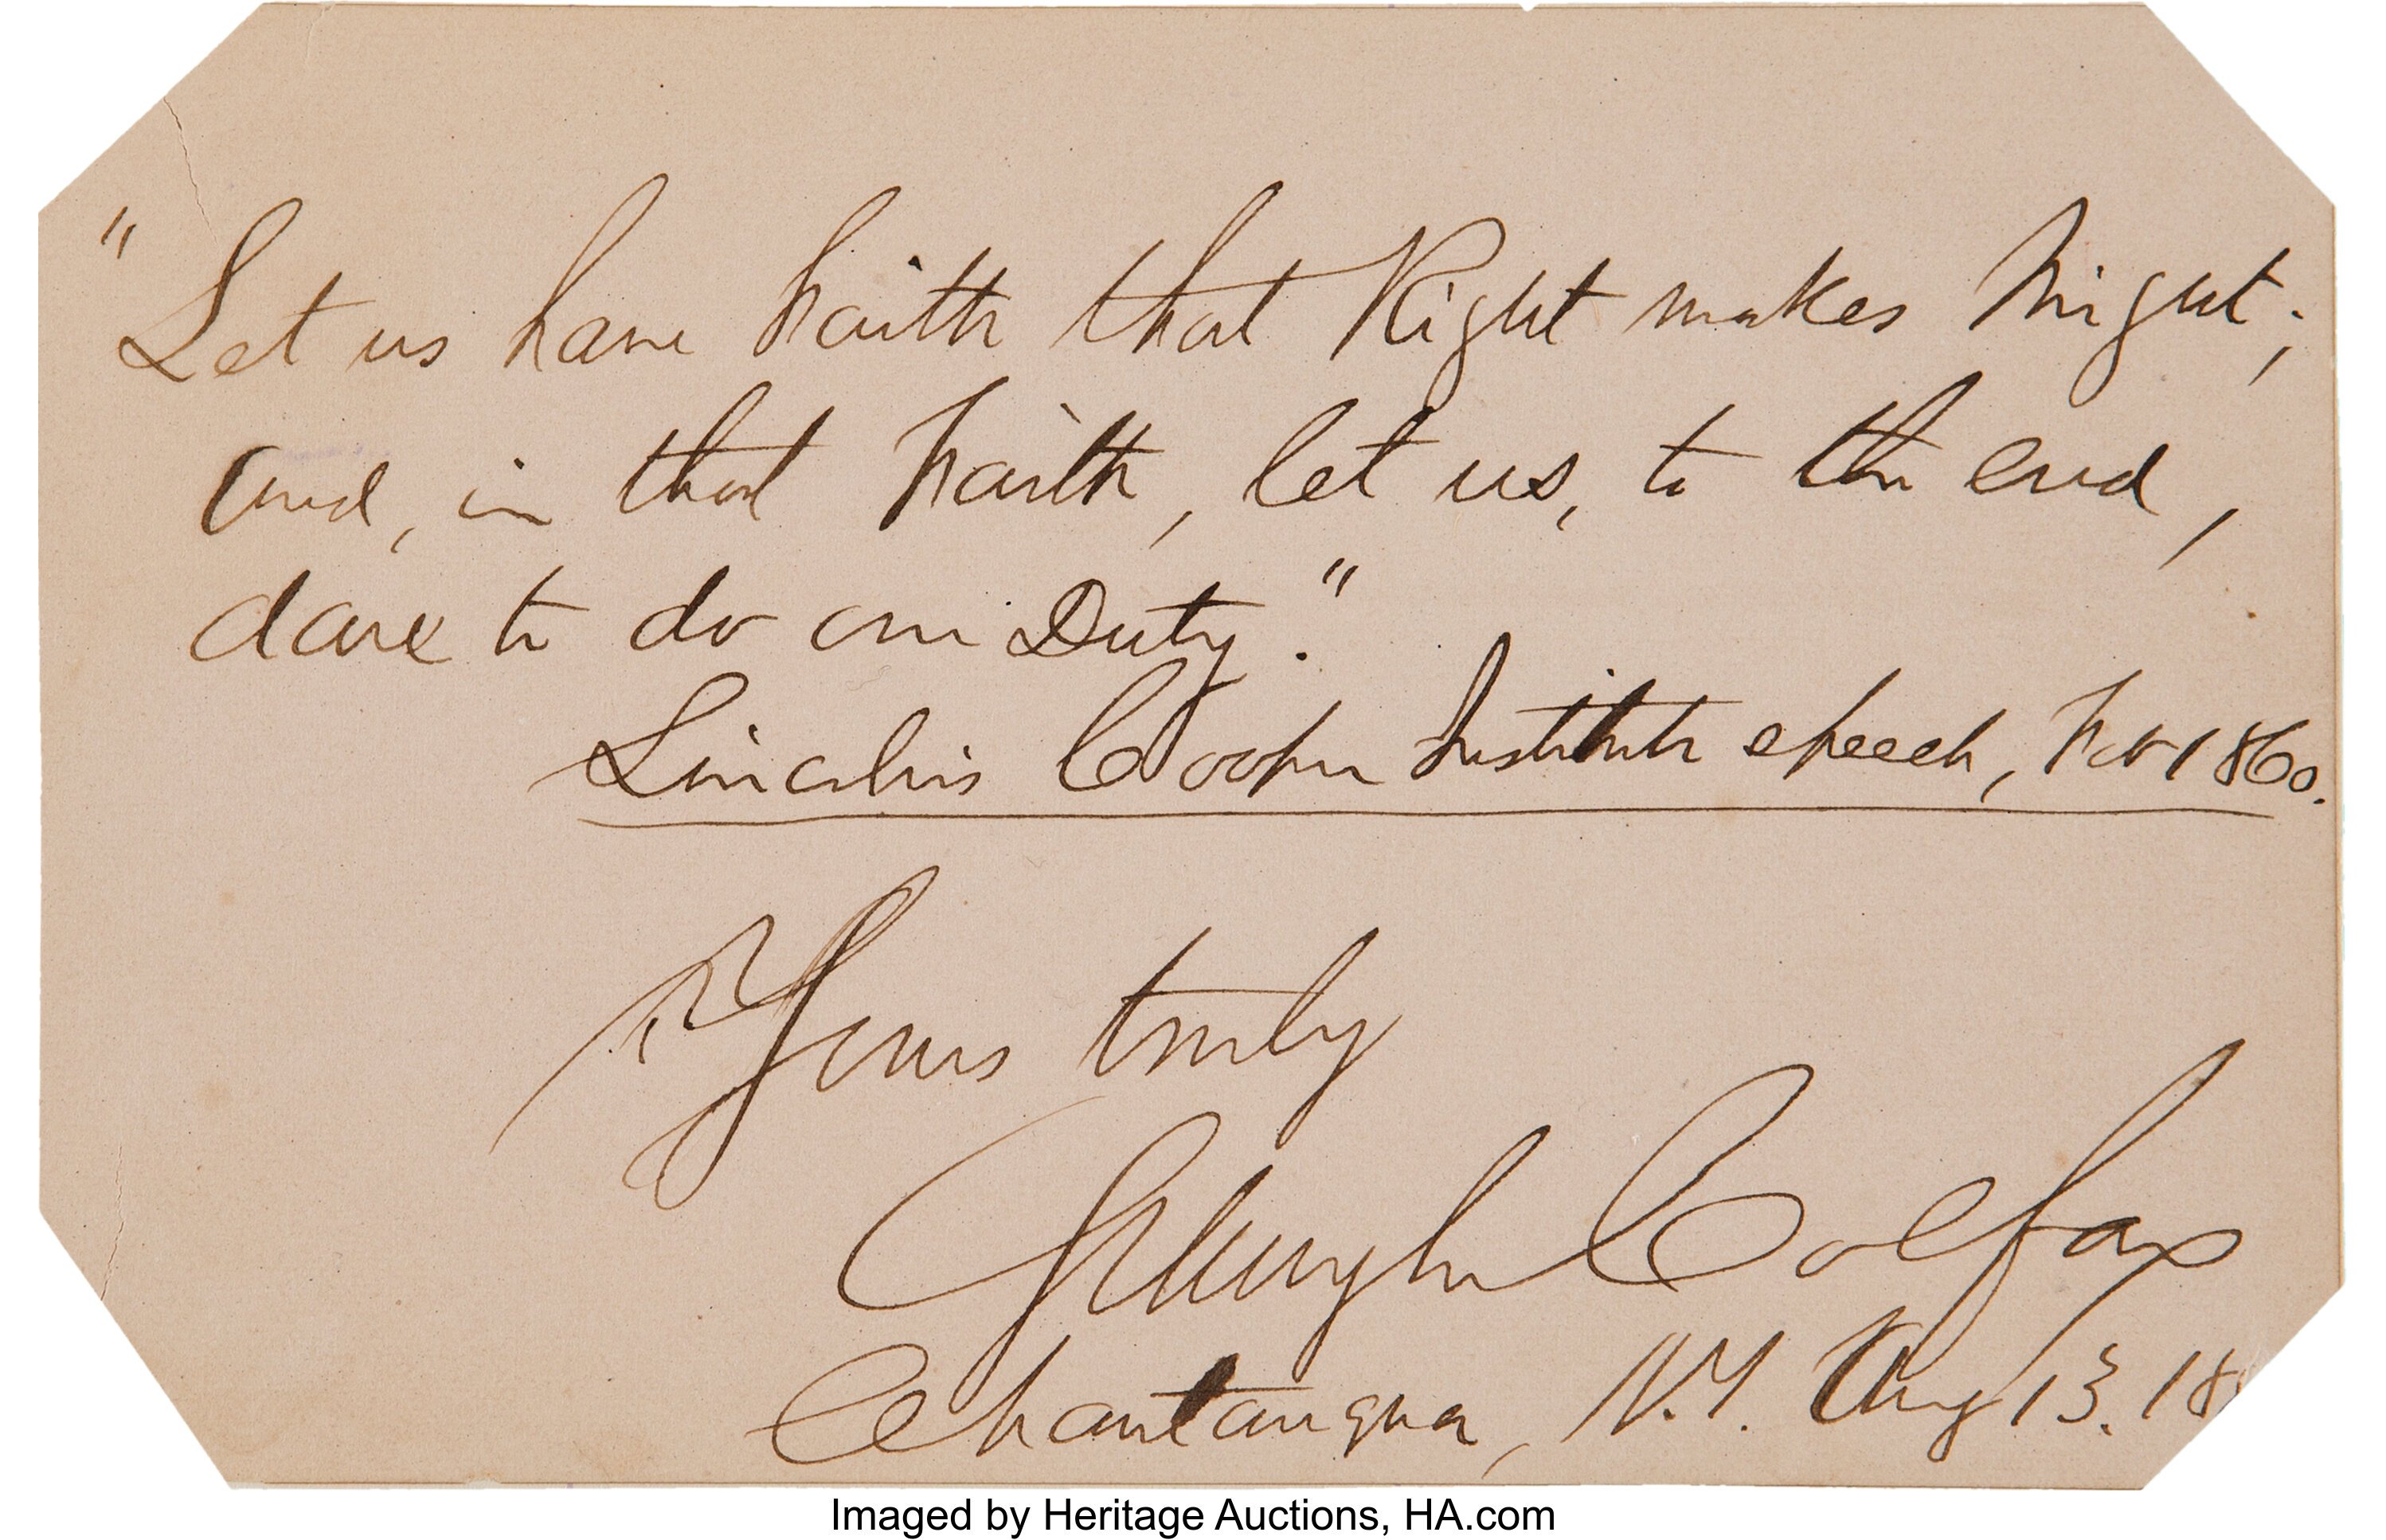 "Let us have Faith that Right makes Might;
and, in that Faith, let us, to the end,
dare to do our Duty."
Lincoln's Cooper Institute speech, Feb 1860.
Yours truly
Schuyler Colfax
Chautauqua, N.Y. Aug 13. 18
Imaged by Heritage Auctions, HA.com